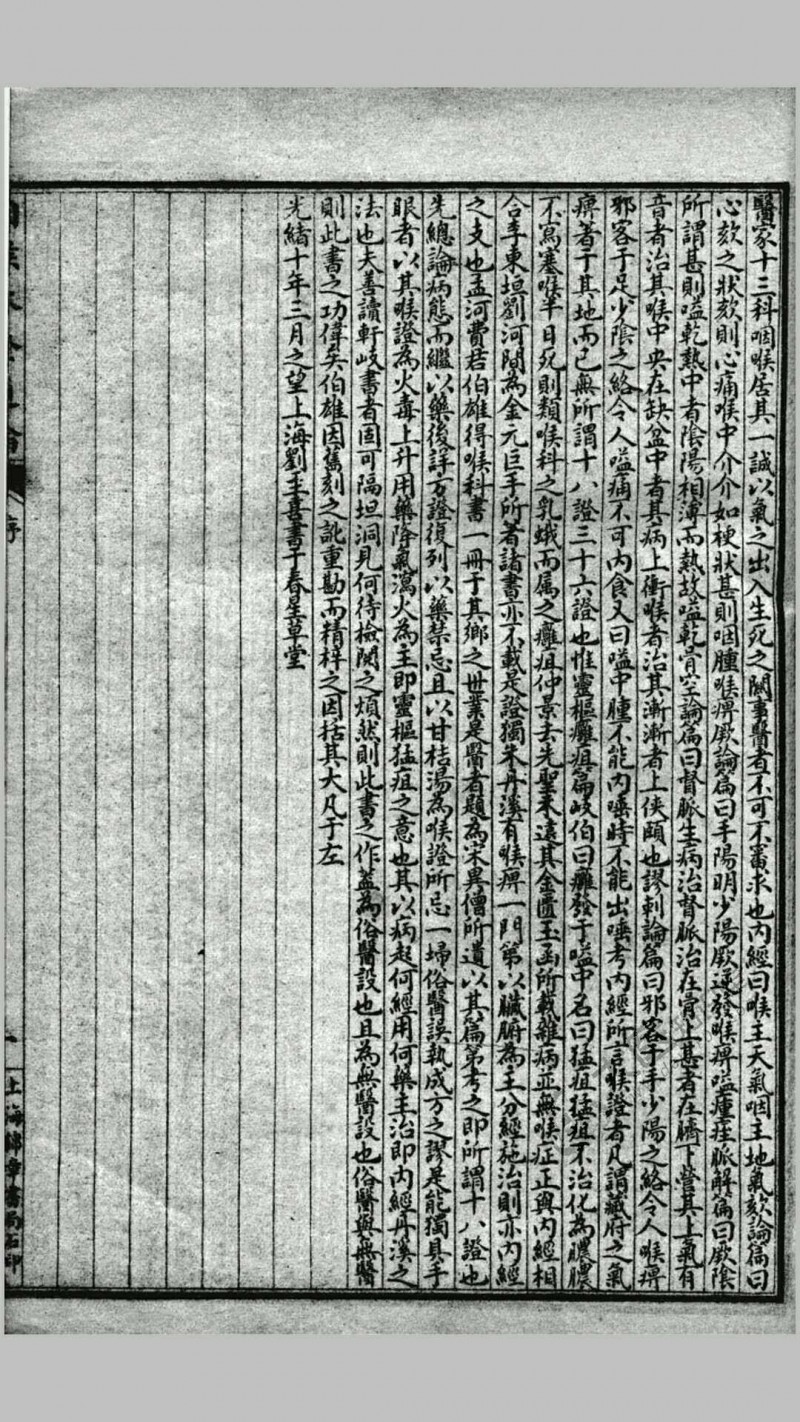 醫家十三科咽喉居其一誠以氣之出入生死之關事醫者不可不審求也內經曰喉主天氣咽主地氣欬論篇曰
心欬之狀欬則心痛喉中介介如梗狀甚則咽腫喉痺厥論篇曰手陽明少陽厥逆發喉痺嗌腫痓脈解篇曰厥陰
所謂甚則嗌乾熱中者陰陽相薄而熱故嗌乾骨空論篇曰督脈生病治督脈治在骨上甚者在臍下營其上氣有
音者治其喉中央在缺盆中者其病上衝喉者治其漸漸者上俠頤也謬刺論篇曰邪客于手少陽之絡令人喉痺
邪客于足少陰之絡令人嗌痛不可內食又曰嗌中腫不能內唾時不能出唾考內經所言喉證者凡謂藏府之氣
痺著于其地而已無所謂十八證三十六證也惟靈樞癰疽篇岐伯曰癰發于嗌中名曰猛疽猛疽不治化為膿膿
不寫塞喉半日死則類喉科之乳蛾而屬之癰疽仲景去先聖未遠其金匱玉函所載雜病並無喉症正與內經相
合李東垣劉河間為金元巨手所著諸書亦不載是證獨朱丹溪有喉痺一門第以臟腑為主分經施治則亦內經
之支也孟河費君伯雄得喉科書一冊于其鄉之世業是醫者題為宋異僧所遺以其篇第考之即所謂十八證也
先總論病態而繼以藥後詳方證復列以藥禁忌且以甘桔湯為喉證所忌一埽俗醫誤執成方之謬是能獨具手
眼者以其喉證為火毒上升用藥降氣瀉火為主即靈樞猛疽之意也其以病起何經用何藥主治即內經丹溪之
法也夫善讀軒岐書者固可隔垣洞見何待檢閱之煩然則此書之作蓋為俗醫設也且為無醫設也俗醫與無醫
則此書之功偉矣伯雄因舊刻之訛重勘而精梓之因括其大凡于左
光緒十年三月之望上海劉至喜書于春星草堂
序
一
上海錦章書局石印